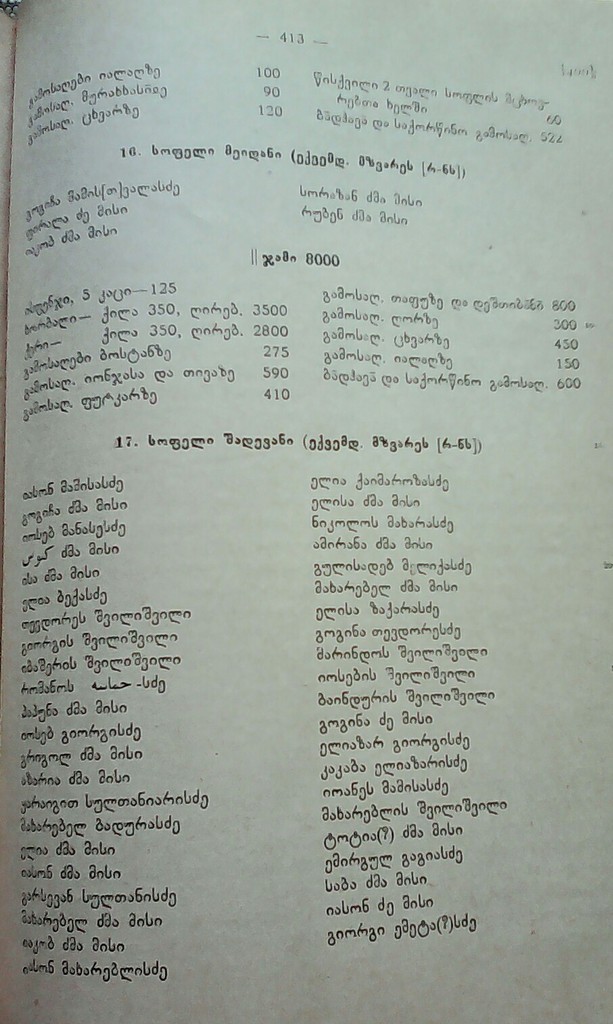 — 413 —
გამოსაღები იალაღზე 100
გამოსაღ. მურახხასიდე 90
გამოსაღ. ცხვარზე 120
წისქვილი 2 თვალი სოფლის მცხოვ-
რებთა ხელში 60
ბადჰავა და საქორწინო გამოსაღ. 522
16. სოფელი მეიდანი (ექვემდ. მზვარეს [რ-ნს])
გოგიჩა მამის[თ]ვალასძე
ფირალა ძე მისი
იაკობ ძმა მისი
სორაზან ძმა მისი
რუბენ ძმა მისი
|| ჯამი 8000
ისფენჯი, 5 კაცი—125
ხორბალი— ქილა 350, ღირებ. 3500
ქერი— ქილა 350, ღირებ. 2800
გამოსაღები ბოსტანზე 275
გამოსაღ. იონჯასა და თივაზე 590
გამოსაღ. ფუტკარზე 410
გამოსაღ. თაფუზე და დეშთიბანი 800
გამოსაღ. ღორზე 300
გამოსაღ. ცხვარზე 450
გამოსაღ. იალაღზე 150
ბადჰავა და საქორწინო გამოსაღ. 600
17. სოფელი შადევანი (ექვემდ. მზვარეს [რ-ნს])
იასონ მამისასძე
გოგიჩა ძმა მისი
იოსებ მანასესძე
ძმა მისი
ისა ძმა მისი
ელია ბექასძე
თევდორეს შვილიშვილი
გიორგის შვილიშვილი
იბაშერის შვილიშვილი
რომანოს -სძე
პაპუნა ძმა მისი
იოსებ გიორგისძე
გრიგოლ ძმა მისი
აზარია ძმა მისი
ყარაიგით სულთანიარისძე
მახარებელ ბადურასძე
ელია ძმა მისი
იასონ ძმა მისი
გარსევან სულთანისძე
მახარებელ ძმა მისი
იაკობ ძმა მისი
იასონ მახარებლისძე
ელია ქაიმაროზასძე
ელისა ძმა მისი
ნიკოლოს მახარასძე
ამირანა ძმა მისი
გულისადებ მელიქასძე
მახარებელ ძმა მისი
ელისა ზაქარასძე
გოგინა თევდორესძე
მარინდოს შვილიშვილი
იოსების შვილიშვილი
ბაინდურის შვილიშვილი
გოგინა ძე მისი
ელიაზარ გიორგისძე
კაკაბა ელიაზარისძე
იოანეს მამისასძე
მახარებლის შვილიშვილი
ტოტია(?) ძმა მისი
ემირგულ გაგიასძე
საბა ძმა მისი
იასონ ძე მისი
გიორგი ემეტა(?)სძე